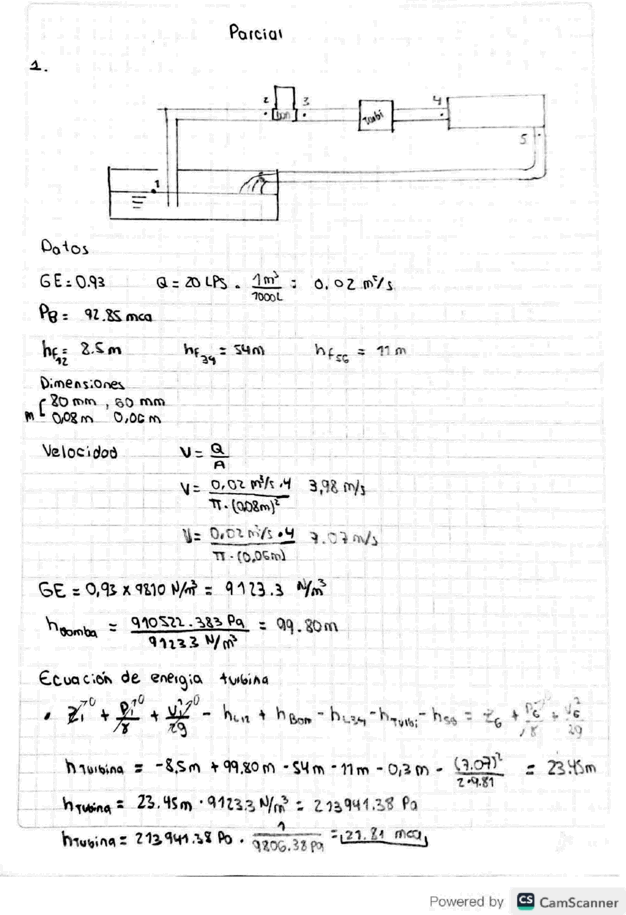 Parcial
1.
2 3 4
Bom
Turbi
5
1
Datos
GE = 0.93 Q = 20 LPS . 1m³/1000L = 0.02 m³/s
PB = 92.85 mca
hf12 = 8.5m hf34 = 54m hf56 = 11m
Dimensiones
80 mm, 60 mm
m 0,08m 0,06m
Velocidad V = Q/A
V = 0,02 m³/s . 4 / π . (0,08m)² 3,98 m/s
V = 0,02 m³/s . 4 / π . (0,06m) 7.07 m/s
GE = 0,93 x 9810 N/m³ = 9123.3 N/m³
hbomba = 910522.383 Pa / 9123.3 N/m³ = 99.80m
Ecuación de energia turbina
• Z1→0 + P1→0/γ + V1²→0/2g - hL12 + hBom - hL34 - hTurbi - h56 = Z6 + P6→0/γ + V6²/2g
hTurbina = -8,5m + 99,80m - 54m - 11m - 0,3m - (7.07)²/2*9.81 = 23.45m
hTubina = 23.45m . 9123.3 N/m³ = 213941.38 Pa
hTubina = 213941.38 Pa . 1/9806.38 Pa = 21.81 mca
Powered by CS CamScanner